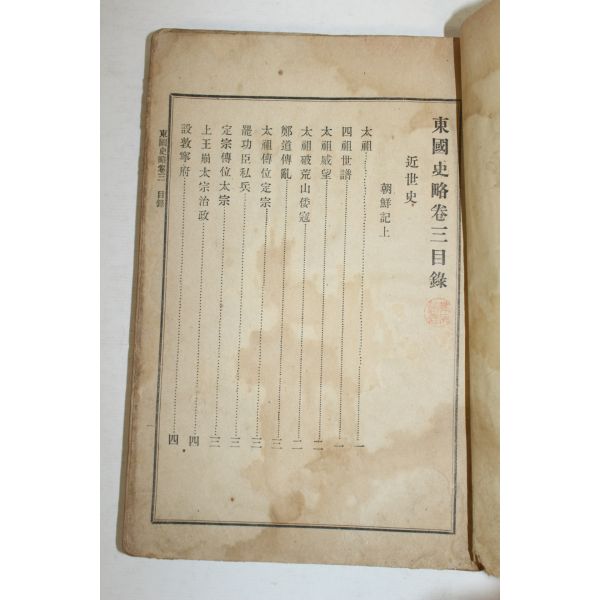 東國史略卷三目錄
近世史
朝鮮記上
太祖 一
四祖世譜 一
太祖威望 二
太祖破荒山倭寇 二
鄭道傳亂 三
太祖傳位定宗 三
罷功臣私兵 三
定宗傳位太宗 三
上王崩太宗治政 四
設敦寧府 四
東國史略卷三 目錄